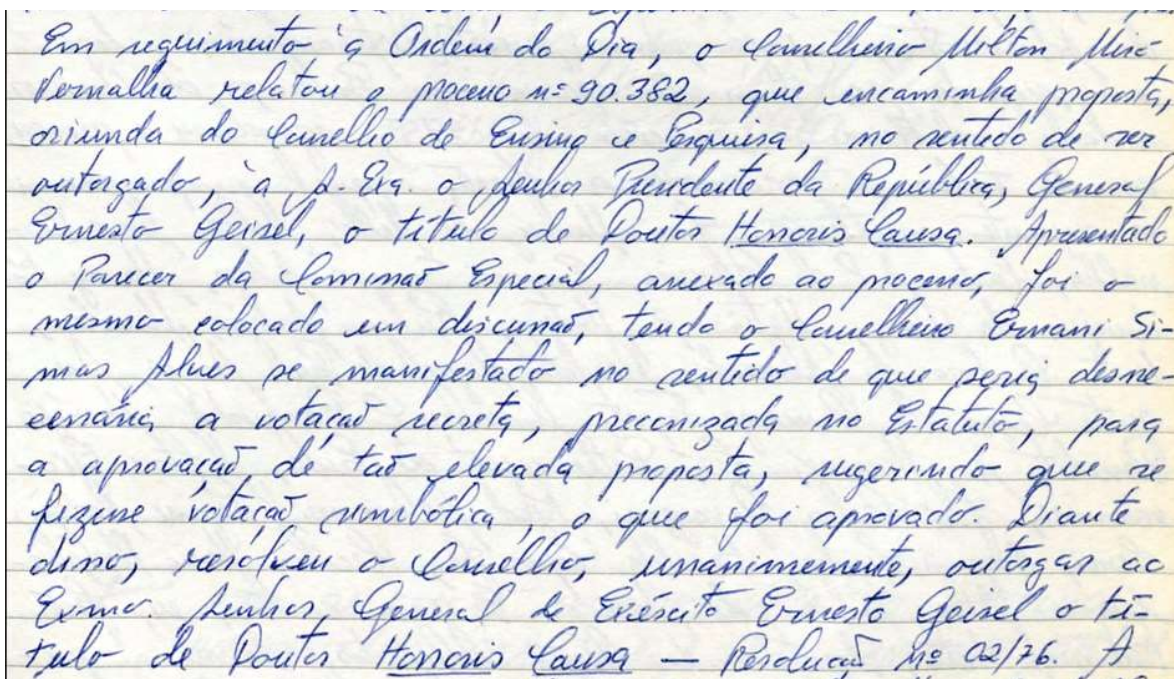 Em seguimento à Ordem do Dia, o Conselheiro Milton Miró
Vernalha relatou o processo nº 90.382, que encaminha proposta,
oriunda do Conselho de Ensino e Pesquisa, no sentido de ser
outorgado, a S. Exa. o Senhor Presidente da República, General
Ernesto Geisel, o título de Doutor Honoris Causa. Apresentado
o Parecer da Comissão Especial, anexado ao processo, foi o
mesmo colocado em discussão, tendo o Conselheiro Ernani Si-
mas Alves se manifestado no sentido de que seria desne-
cessária a votação secreta, preconizada no Estatuto, para
a aprovação de tão elevada proposta, sugerindo que se
fizesse votação simbólica, o que foi aprovado. Diante
disso, resolveu o Conselho, unanimemente, outorgar ao
Exmo. Senhor General de Exército Ernesto Geisel o tí-
tulo de Doutor Honoris Causa — Resolução nº 02/76. A